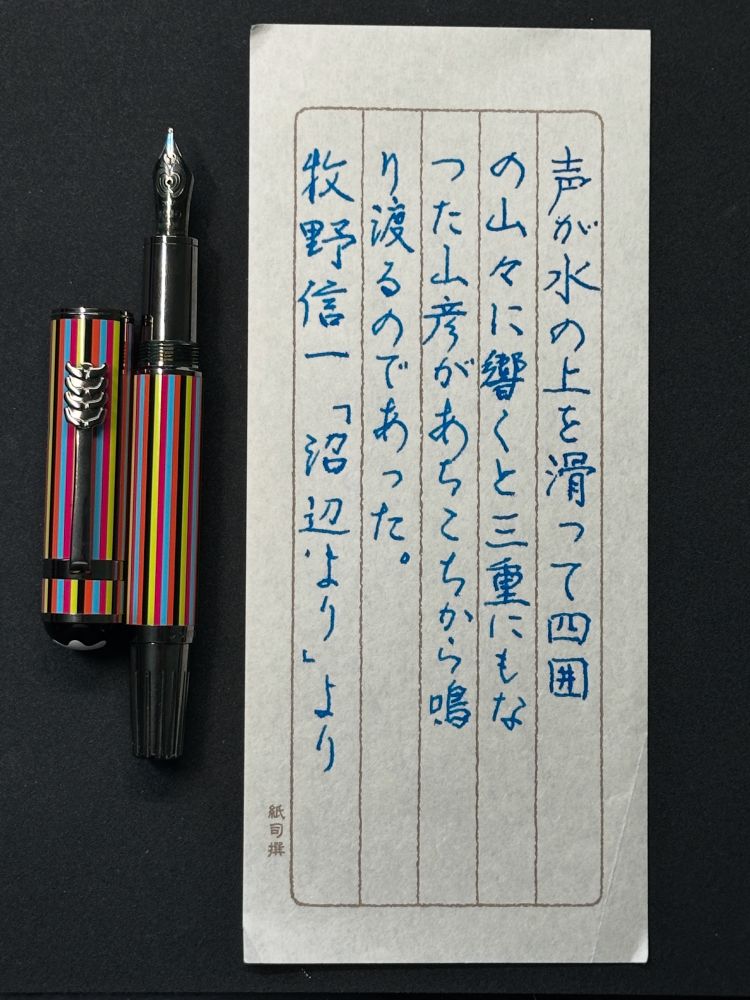 声が水の上を滑って四囲
の山々に響くと三重にもな
つた山彦があちこちから鳴
り渡るのであった。
牧野信一「沼辺より」より
紙司撰